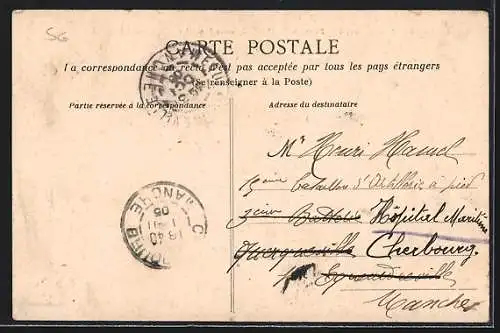 SG
CARTE POSTALE
La correspondance au recto n'est pas acceptée par tous les pays étrangers
(Se renseigner à la Poste)
Partie réservée à la correspondance
Adresse du destinataire
Mr Henri Hamel
15ème bataillon d'Artillerie à pied
3ème Batterie Hôpital Maritime
Querqueville Cherbourg
Equeurdreville
Manche
MANCHE
05
18 40